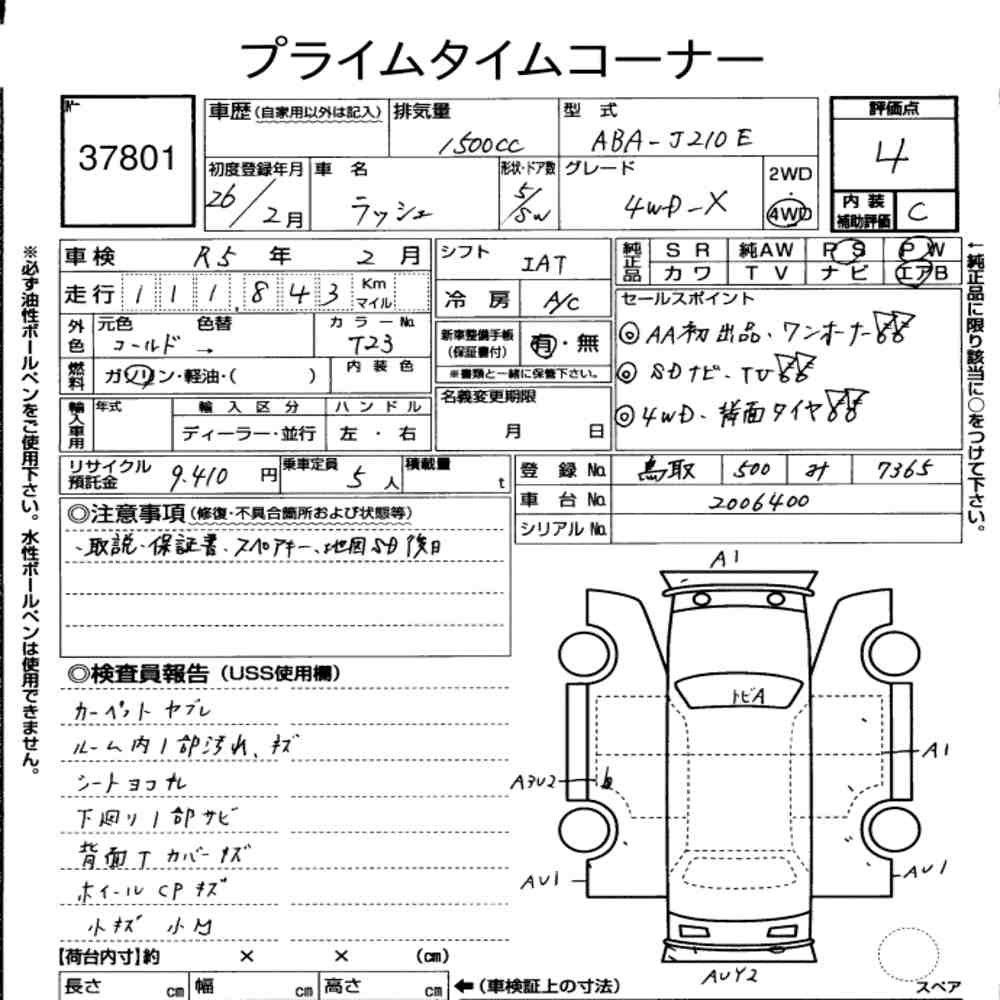 プライムタイムコーナー
37801
車歴(自家用以外は記入) 排気量 1500cc 型式 ABA-J210E
評価点 4
初度登録年月 26/2月 車名 ラッシュ 形状・ドア数 5/SW グレード 4WD-X 2WD・4WD
内装補助評価 C
車検 R5年 2月 シフト IAT
純正品 SR 純AW PS PW
カワ TV ナビ エアB
走行 111,843 Km マイル 冷房 A/C
セールスポイント
◎AA初出品・ワンオーナー!!
◎SDナビ・TV!!
◎4WD・背面タイヤ!!
外色 元色 色替 カラーNo.
ゴールド → T23
新車整備手帳(保証書付) 有・無
※書類と一緒に保管下さい。
燃料 ガソリン・軽油・( ) 内装色
名義変更期限
月 日
輸入車用 年式 輸入区分 ハンドル
ディーラー・並行 左・右
リサイクル預託金 9,410円 乗車定員 5人 積載量 t
登録No. 鳥取 500 み 7365
車台No. 2006400
シリアルNo.
◎注意事項(修復・不具合箇所および状態等)
・取説・保証書、スペアキー、地図SD後日
◎検査員報告(USS使用欄)
カーペットヤブレ
ルーム内1部汚れ、キズ
シートヨゴレ
下廻り1部サビ
背面Tカバーキズ
ホイールCPキズ
小キズ 小M
【荷台内寸】約 × × (cm)
長さ cm 幅 cm 高さ cm ←(車検証上の寸法)
A1
トビA
A1
A3U2
AU1
AU1
AUY2
スペア
※必ず油性ボールペンをご使用下さい。水性ボールペンは使用できません。
←純正品に限り該当に○をつけて下さい。